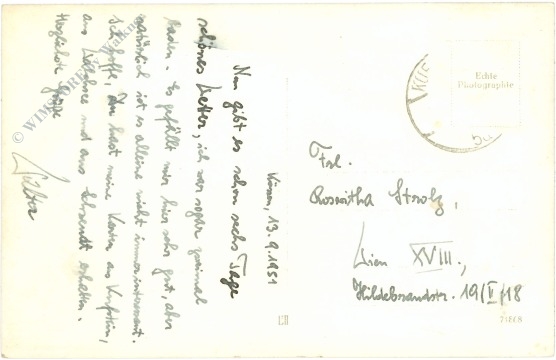 Kössen, 13.9.1951
Nun gibt es schon sechs Tage
schönes Wetter, ich war sogar zweimal
baden. Es gefällt mir hier sehr gut, aber
natürlich ist es alleine nicht immer interessant.
Ich hoffe, Du hast meine Karten aus Kufstein,
aus Walchsee und aus Schwendt erhalten.
Herzlichste Grüße
Echte
Photographie
KÖS
Frl.
Roswitha Strolz,
Wien XVIII.,
Hildebrandstr. 19/II/18